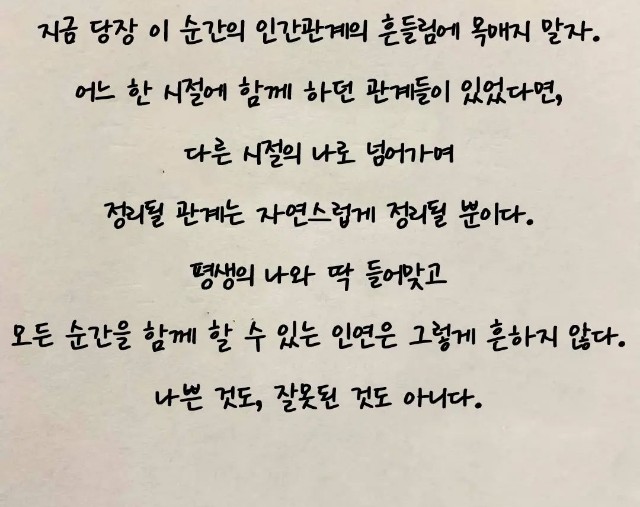 지금 당장 이 순간의 인간관계의 흔들림에 목매지 말자.
어느 한 시절에 함께 하던 관계들이 있었다면,
다른 시절의 나로 넘어가며
정리될 관계는 자연스럽게 정리될 뿐이다.
평생의 나와 딱 들어맞고
모든 순간을 함께 할 수 있는 인연은 그렇게 흔하지 않다.
나쁜 것도, 잘못된 것도 아니다.